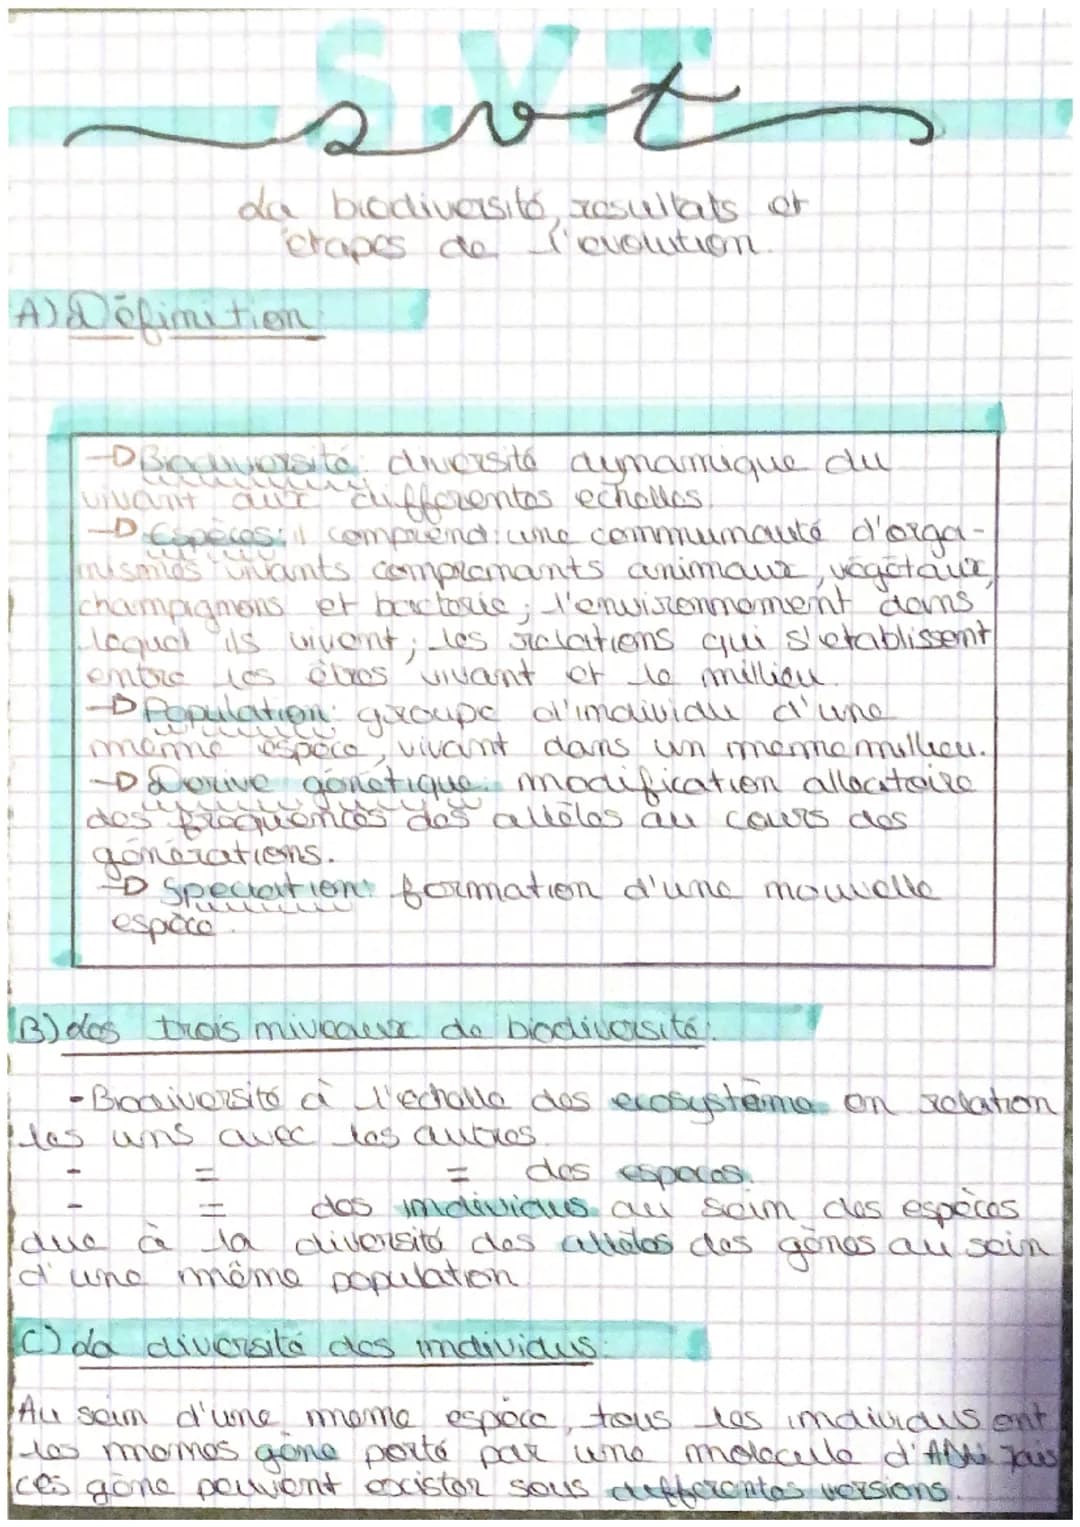 S.V.T
svt
La biodiversité, resultats et
étapes de l'évolution.
A) Définition:
→ Biodiversité: diversité dynamique du
vivant aux differentes echelles.
→ Espèces: il comprend: une communauté d'orga-
nismes vivants compremants animaux, végétaux,
champignons et bacterie; l'environnement dans
lequel ils vivent; les relations qui s'etablissent
entre les êtres vivant et le millieu.
→ Population: groupe d'individu d'une
même espèce, vivant dans un meme millieu.
→ Dérive génétique: modification alléatoire
des fréquences des allèles au cours des
générations.
→ Speciation: formation d'une nouvelle
espèce.
B) Les trois niveaux de biodiversité:
- Biodiversité à l'échelle des ecosystème en relation
les uns avec les autres.
- = = des especes.
- = des individus au sein des espèces
due à la diversité des allèles des gènes au sein
d'une même population.
C) La diversité des individus:
Au sein d'une meme espèce, tous les individus ont
les memes gène porté par une molecule d'ADN mais
ces gène peuvent exister sous differentes versions.